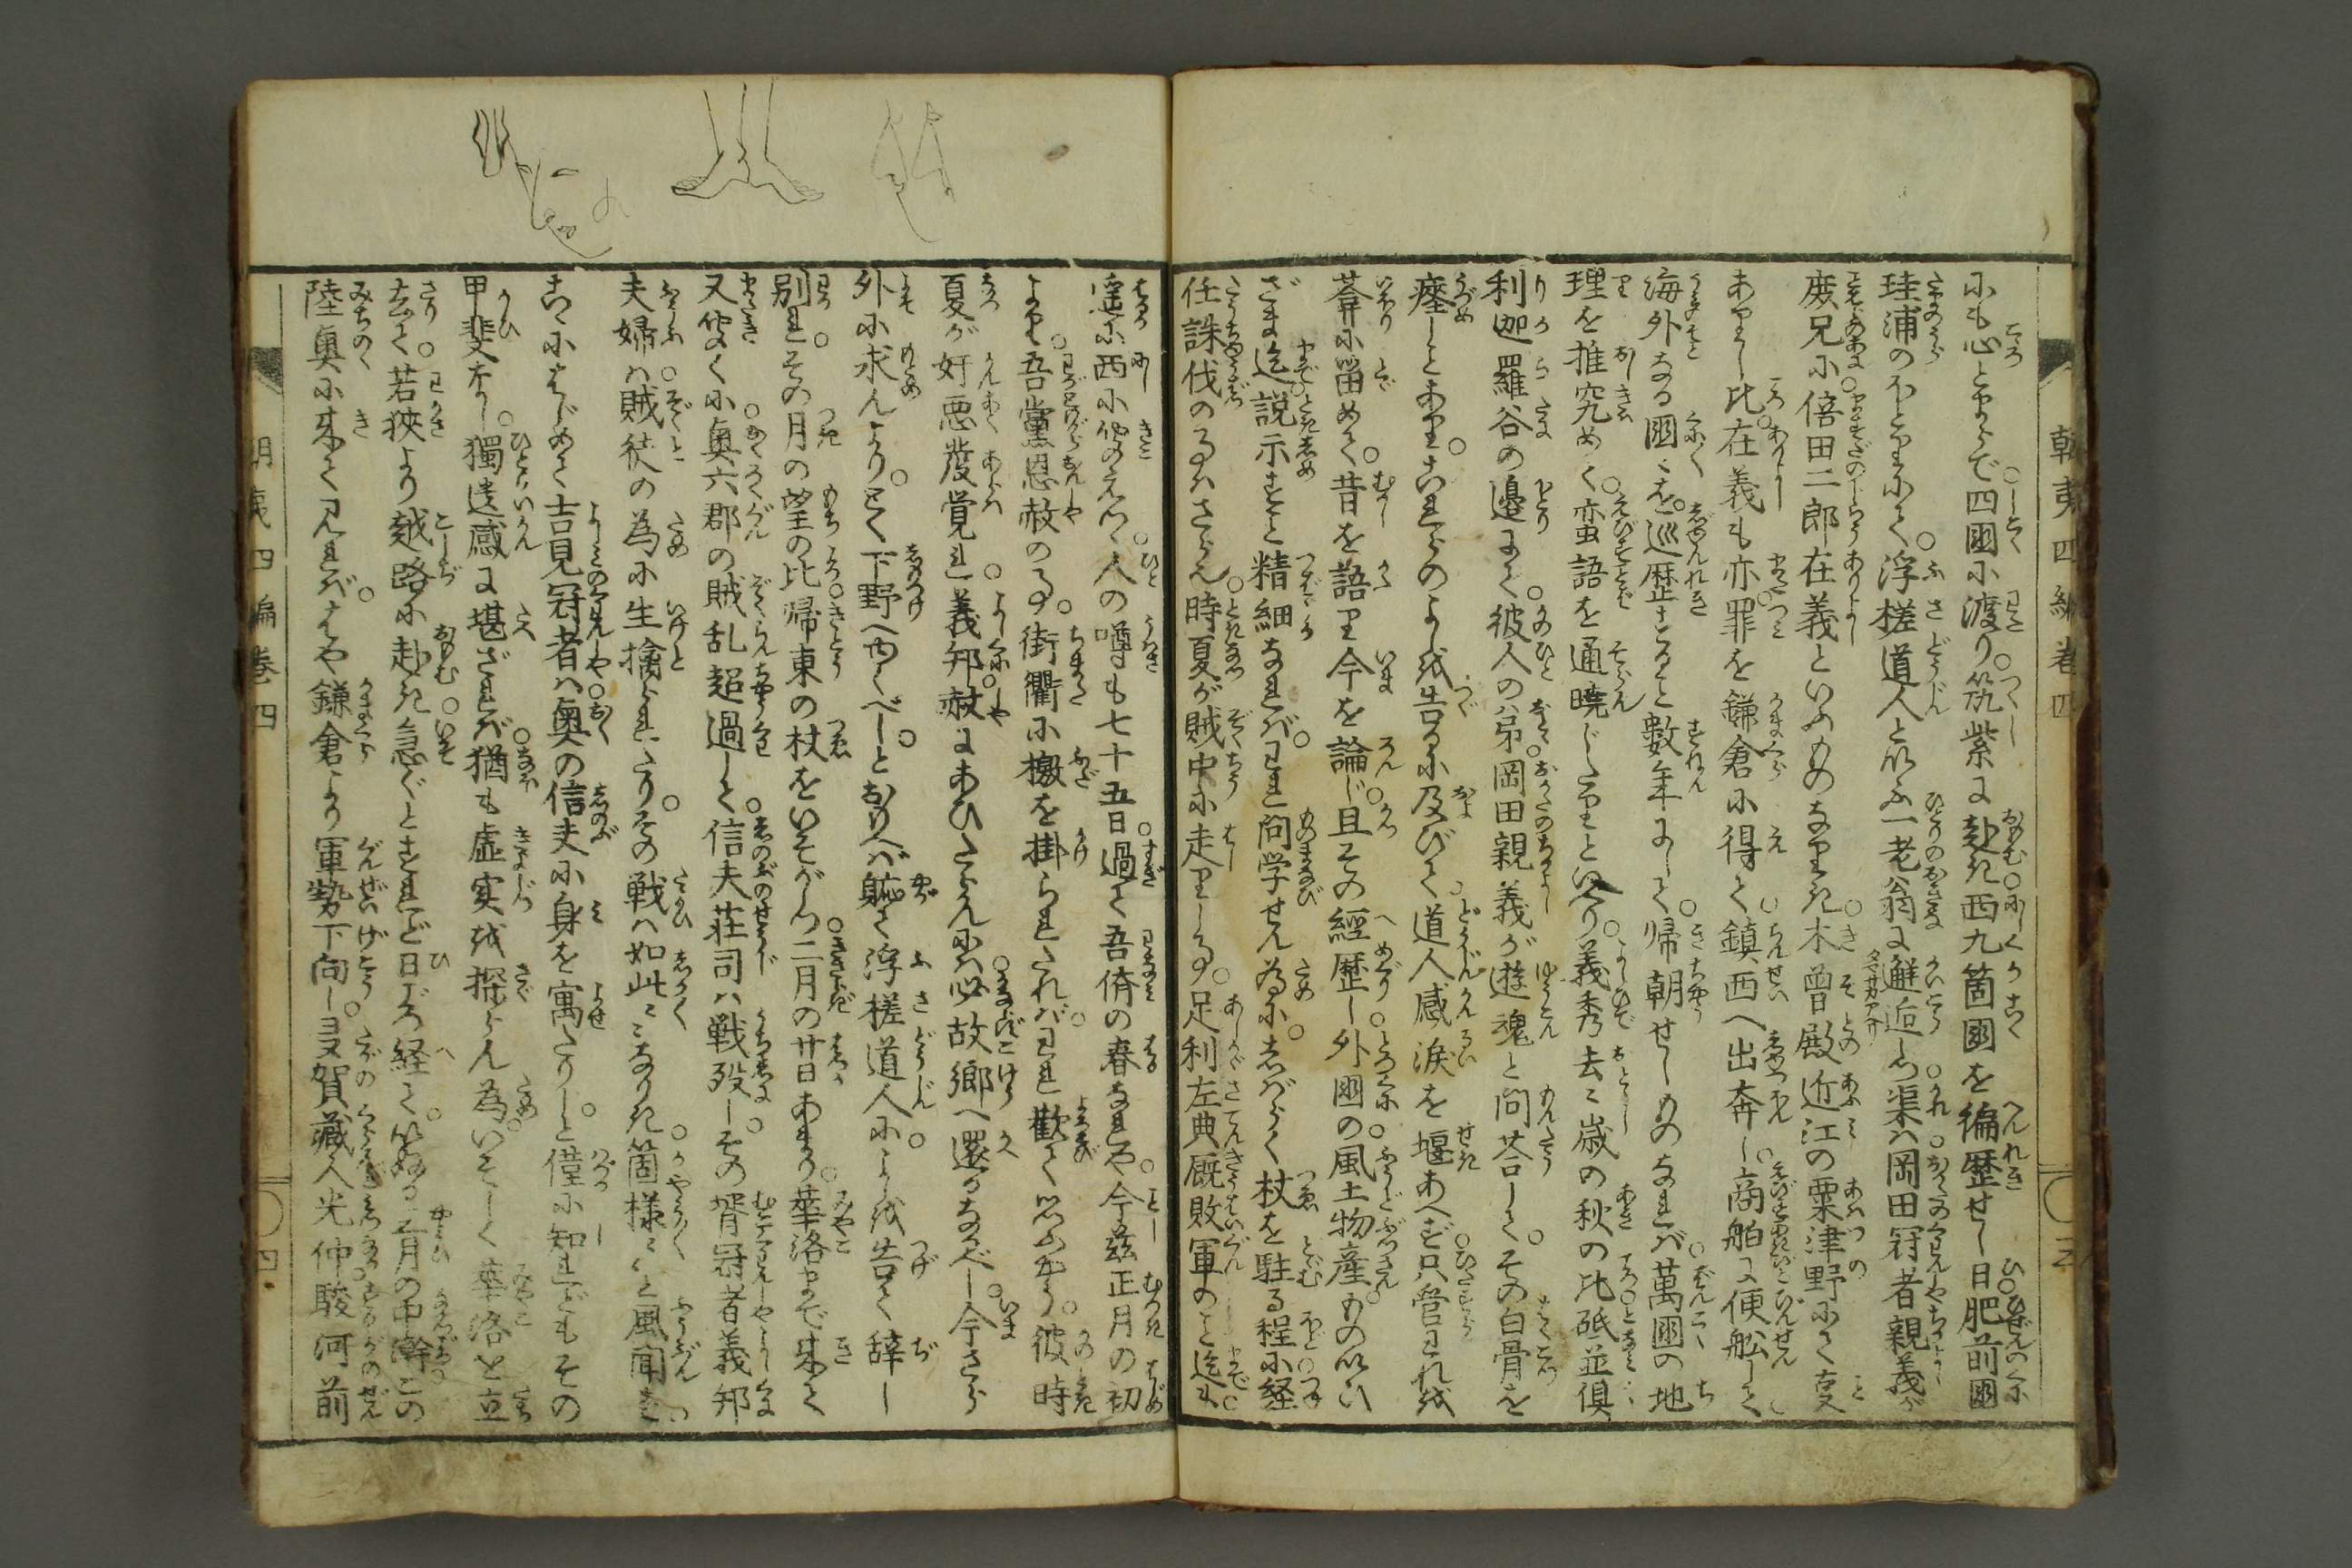 にも心とゞめで四國に渡り。筑紫に赴き西九箇國を徧歴せし日肥前國
珪浦のほとりにて。浮槎道人といふ一老翁に邂逅しつ。渠は岡田冠者親義が
庶兄に倍田二郎在義といふものなりき。木曾殿近江の粟津野にて
比。在義も亦罪を鎌倉に得て。鎮西へ出奔し。商舶に便舩して
海外なる國々を巡歴すること數年にして。帰朝せしものなれば。萬國の地
理を推究めて。蛮語を通暁じたりといへり。義秀去々歳の秋の比砥並倶
利迦羅谷の邉にて。彼人の弟。岡田親義が遊魂と問荅して。その白骨を
瘞しとあり。これらのよしを告るに及びて。道人感涙を堰あへず。只管われを
菴に畄めて。昔を語り今を論じ。且その經歴し外國の風土物産。ものいひ
ざま迄説示すこと精細なれば。われ問学せん為に。しばらく杖を駐る程に。経
任誅伐の事はさらん。時夏が賊中に走りし事。足利左典厩敗軍のこと迄も。
遥に西に聞えつ。人の噂も七十五日。過て吾儕の春なれや。今茲正月の初
より。吾黨恩赦の事。街衢に檄を掛られたれば。われ歡て思ふやう。彼時
夏が奸悪発覚れ。義邦赦にあひたらんには必故郷へ還るなるべし。今さら
外に求んより。とく下野へゆくべしとおもへば。軈て浮槎道人に。よしを告て辞し
別れ。その月の望の比帰東の杖をいそがしつ二月の廿日あまり。華洛まで来て
又聞くに奥六郡の賊乱超過して。信夫莊司は戦殁し。その壻冠者義邦
夫婦は。賊徒の為に生擒られたり。その戦は如此々々なりき。箇様々々と風聞す
こゝにはじめて吉見冠者は。奥の信夫に身を寓たりしと。僅に知れどもその
甲斐なし。獨遺感に堪ざれば。猶も虚実を探らん為。いそしく華洛を立
去て。若狹より越路に赴き。急ぐとすれど日ごろ経て。月の中澣この
陸奥に来て見れば。はや鎌倉より軍勢下向し。多賀藏人光仲駿河前
朝夷四編巻四
四